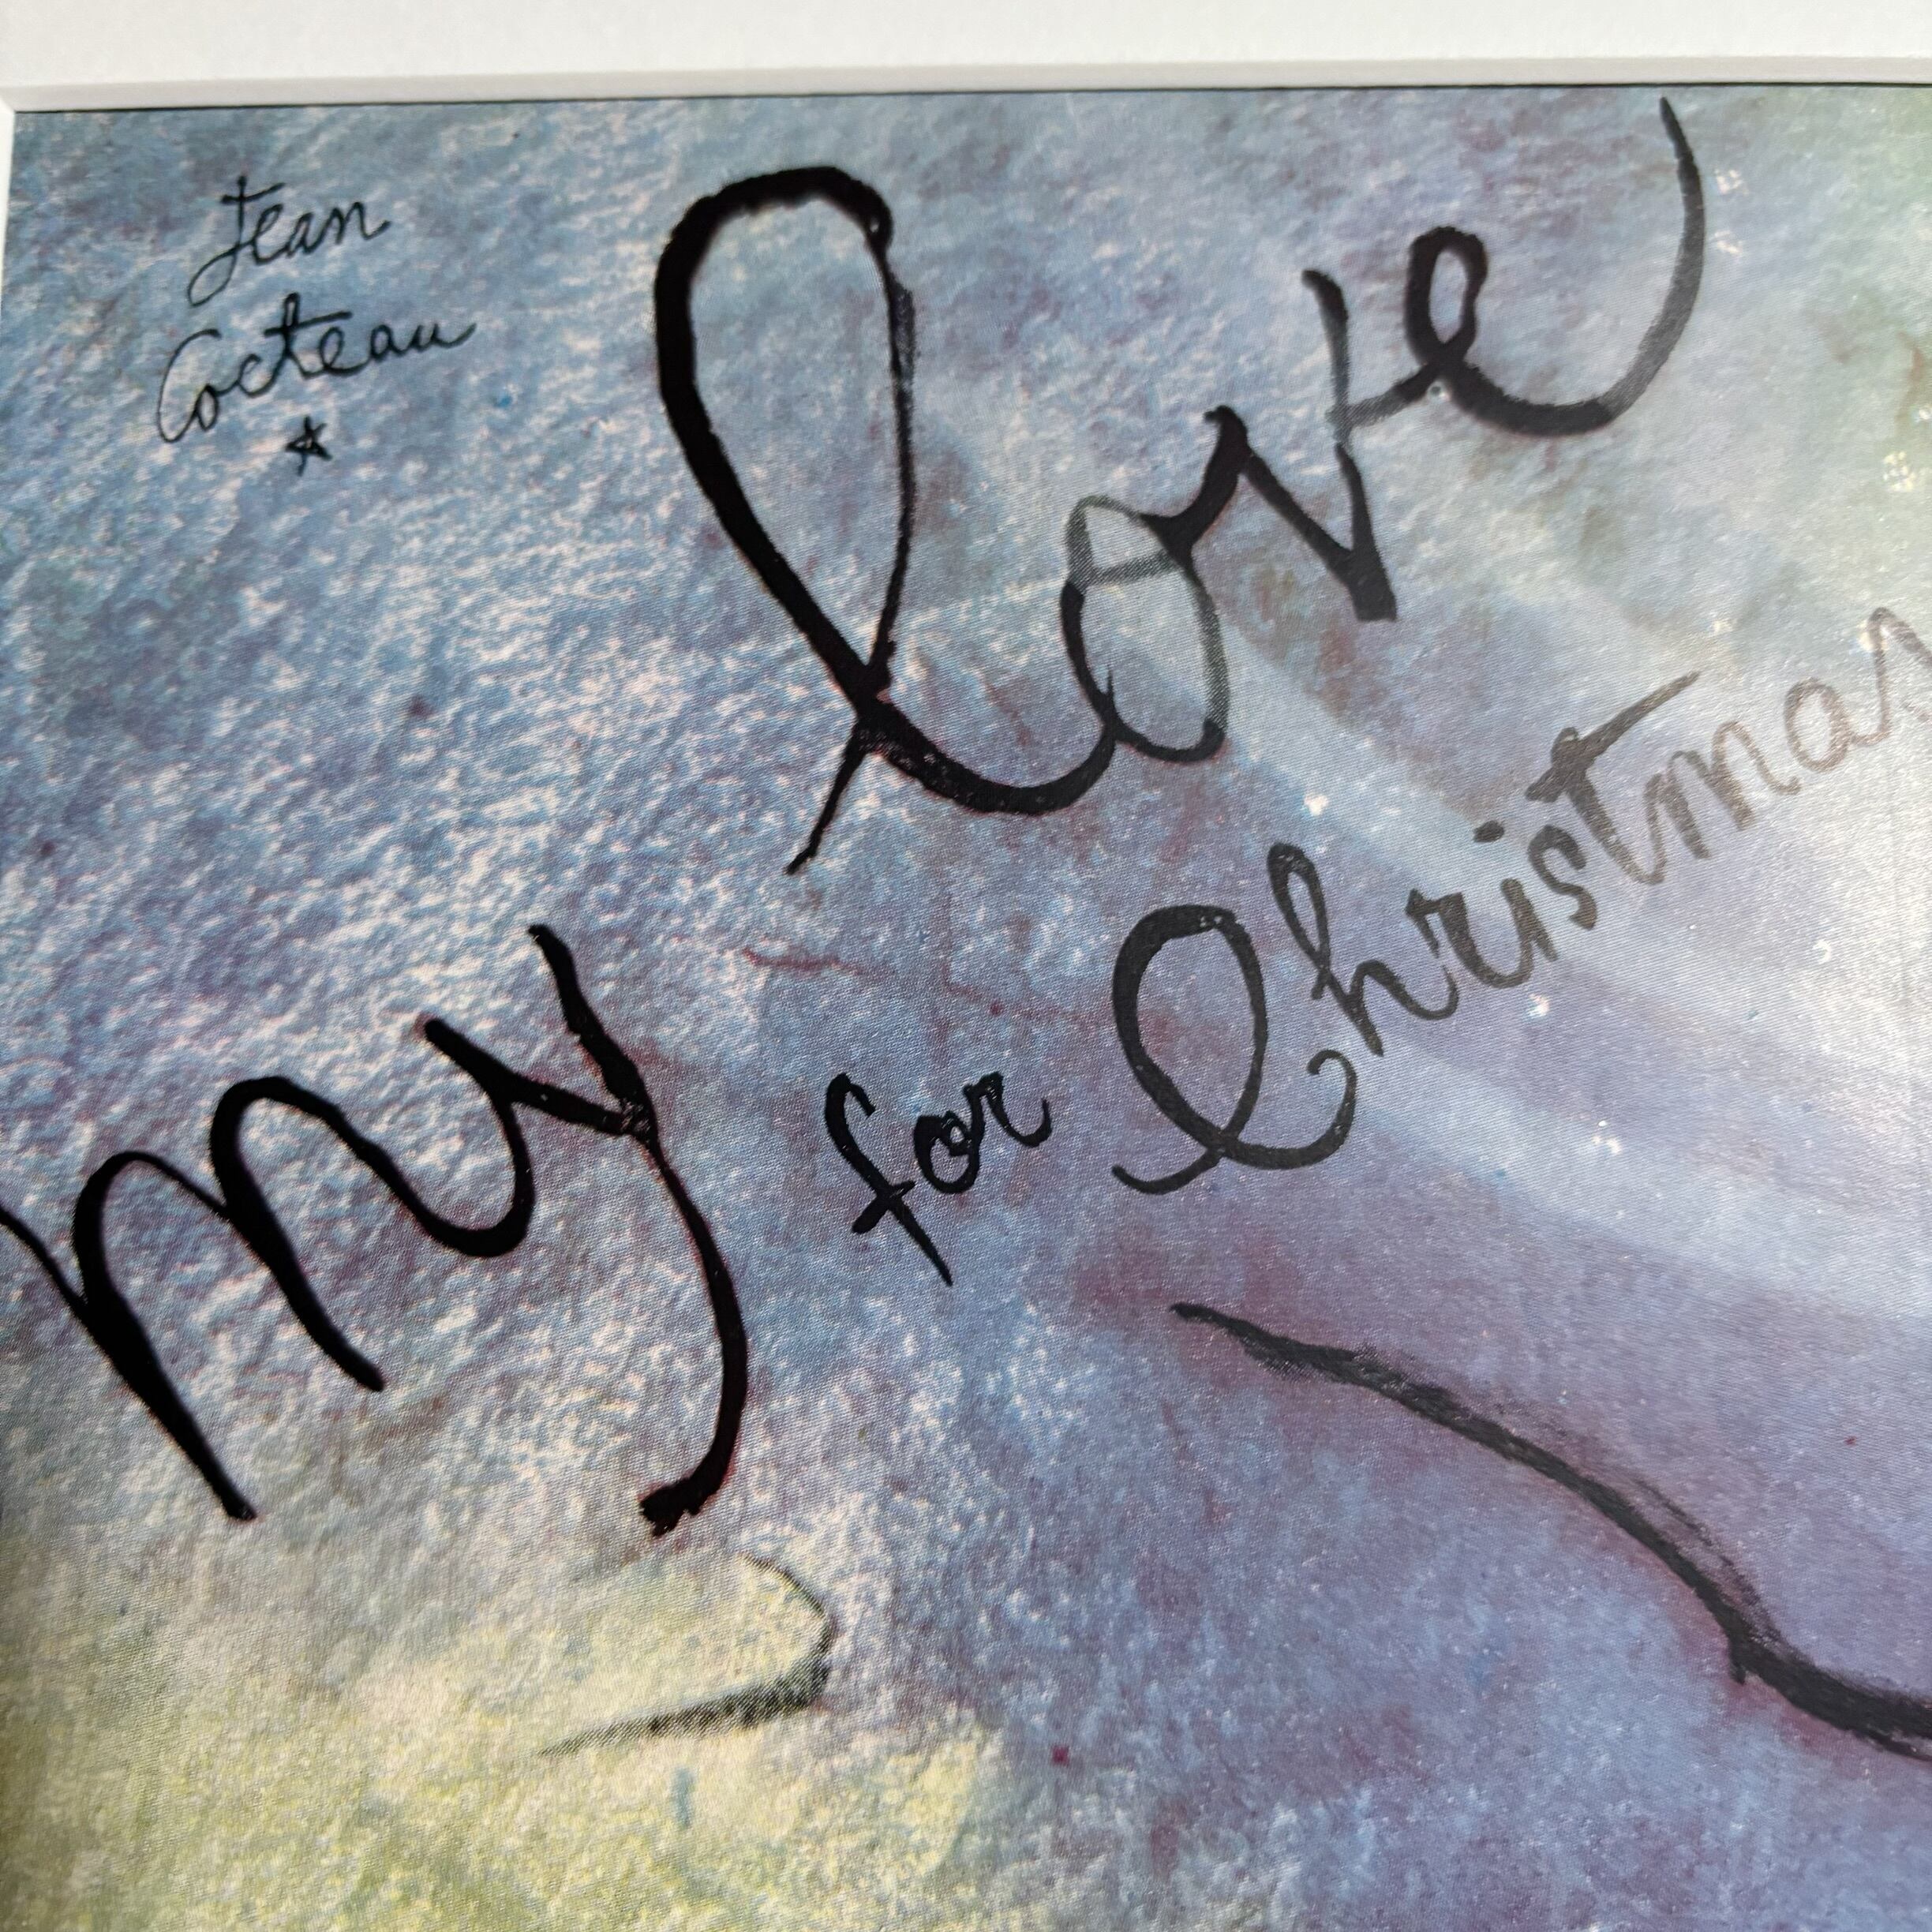 Jean
Cocteau
my love
for Christmas